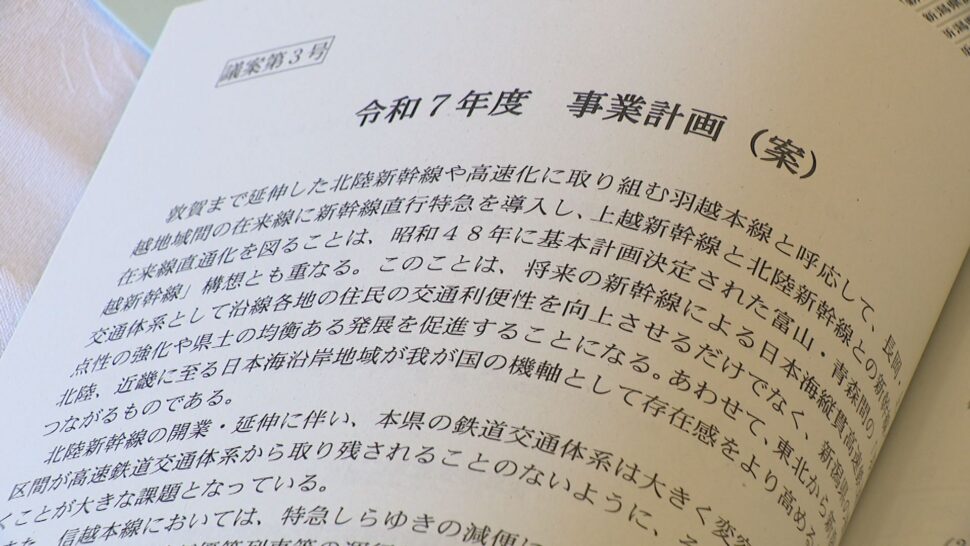 議案第3号
令和7年度　事業計画（案）
敦賀まで延伸した北陸新幹線や高速化に取り組む羽越本線と呼応して、長岡、
越地域間の在来線に新幹線直行特急を導入し、上越新幹線と北陸新幹線との新幹線
在来線直通化を図ることは、昭和48年に基本計画決定された富山・青森間の
越新幹線」構想とも重なる。このことは、将来の新幹線による日本海縦貫高速
交通体系として沿線各地の住民の交通利便性を向上させるだけでなく、新潟県の
点性の強化や県土の均衡ある発展を促進することになる。あわせて、東北から新
北陸、近畿に至る日本海沿岸地域が我が国の機軸として存在感をより高める
つながるものである。
北陸新幹線の開業・延伸に伴い、本県の鉄道交通体系は大きく変
区間が高速鉄道交通体系から取り残されることのないように、そ
くことが大きな課題となっている。
また、信越本線においては、特急しらゆきの減便